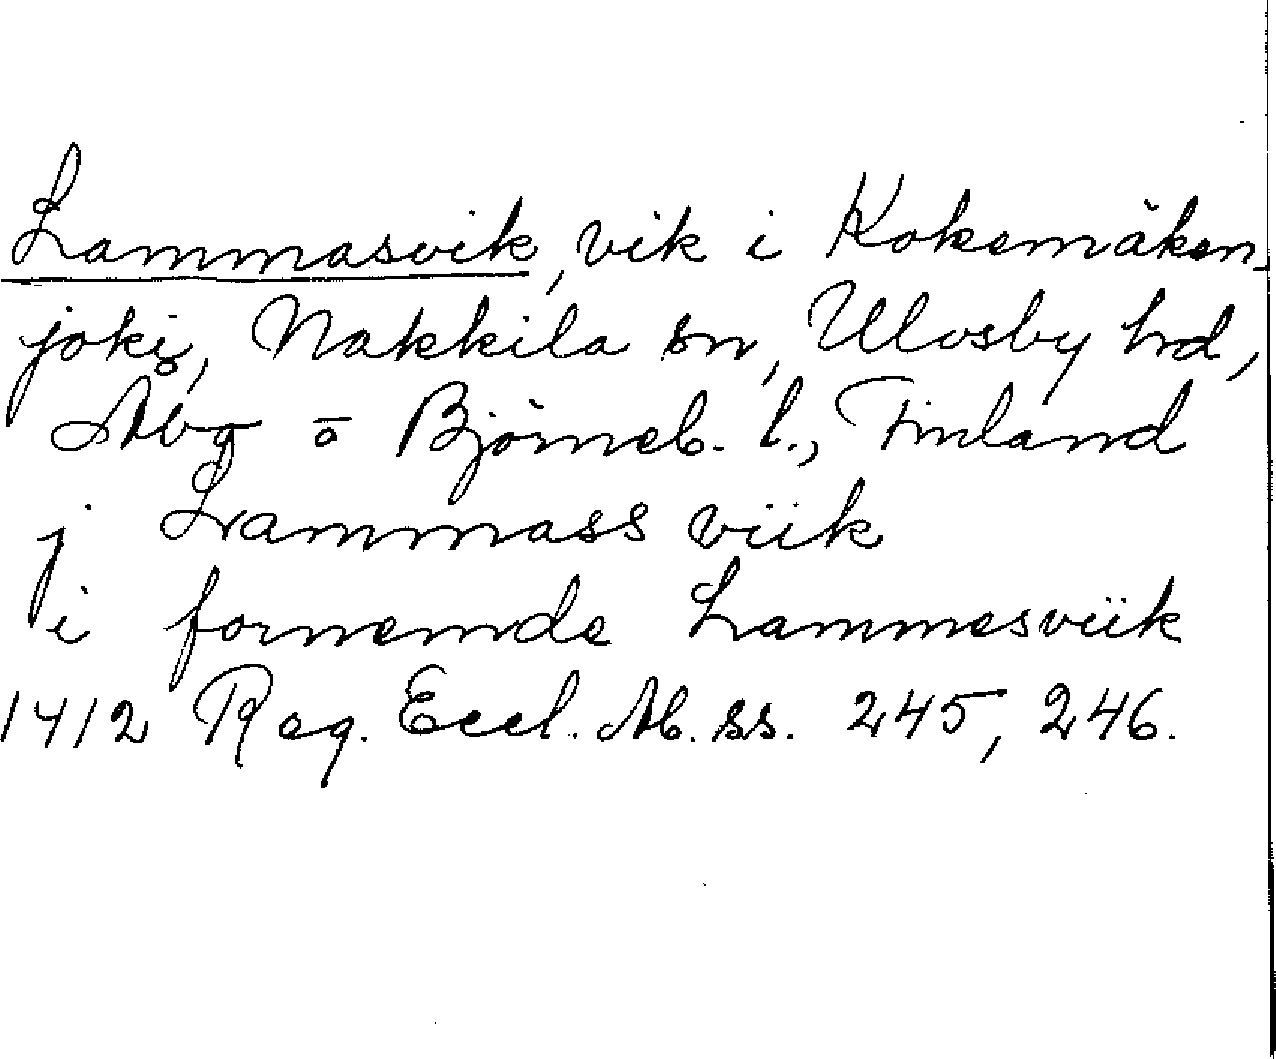 Lammasvik, vik i Kokemäken-
joki, Nakkila sn, Ulvsby hrd,
Åbg o Björneb. l., Finland
j Lammass viik
i fornemde Lammesviik
1412 Reg. Eccl. Ab. ss. 245, 246.